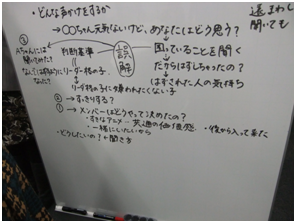 ・どんな声かけをするか
→〇〇ちゃん元気ないけど、あなたはどう思う?
遠まわし
聞いても
Aちゃんには
聞いてみた?
判断基準
リーダー格の子
リーダー格の子に嫌われたくない子
誤解
困っていることを聞く
だからはずしちゃったの?
はずされた人の気持ち
②→すっきりする?
①→メンバーはどうやって決めたの?
・すきなアニメ-共通の価値観
・一緒にいたいから
・後から入って来た
・どうしたいの?←聞き方